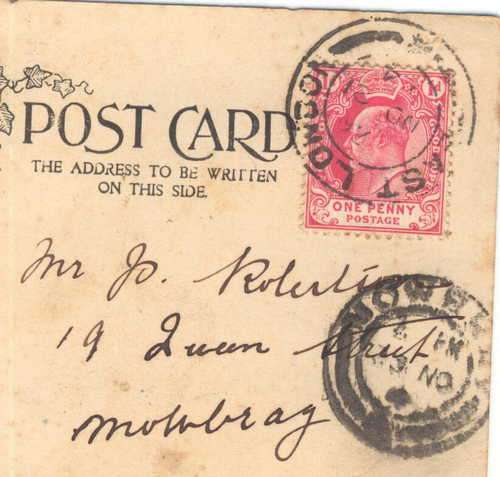 POST CARD
THE ADDRESS TO BE WRITTEN
ON THIS SIDE.
ONE PENNY
POSTAGE
ST LONDO
Mr J. Robertson
19 Queen Street
Mowbray
MOWBRAY
PM
NO